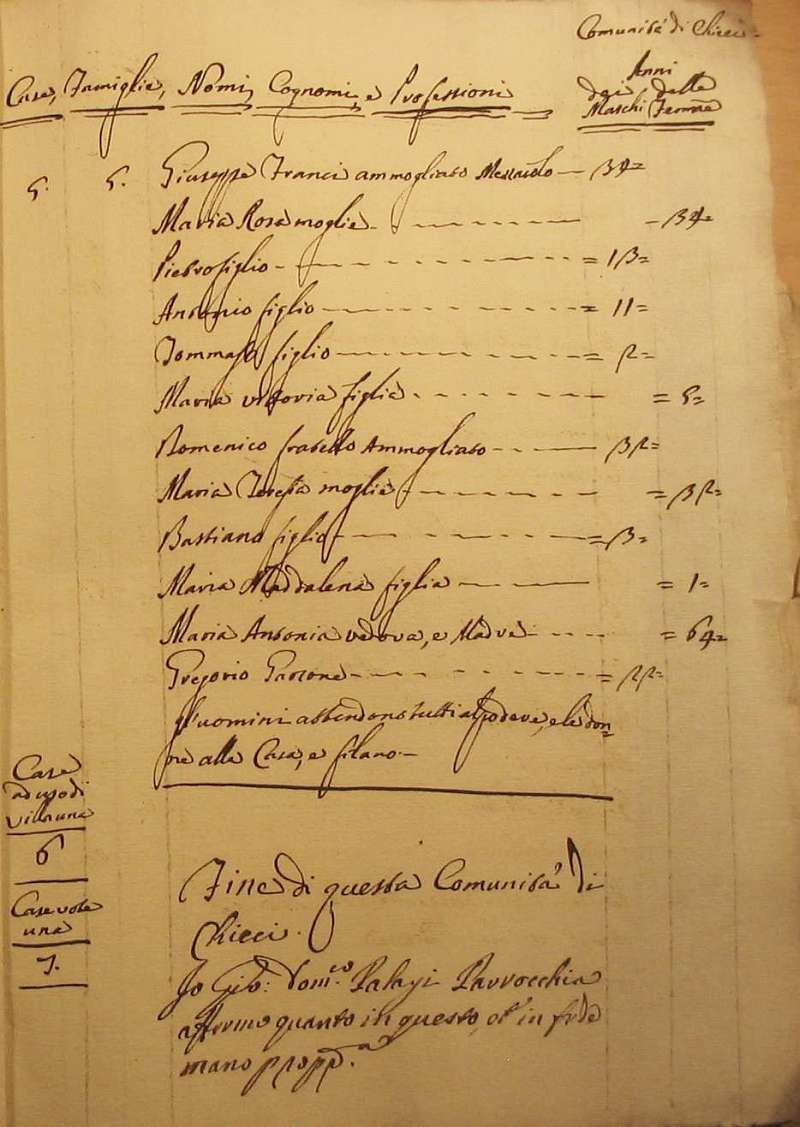 Comunità di Chieci
Case, Famiglie, Nomi, Cognomi, e Professioni
Anni
dei delle
Maschi Femme
5. 5. Giuseppe Franci ammogliato — 34=
Maria Rosa moglie — 34=
Pietro figlio — = 13=
Antonio figlio — = 11=
Tommaso figlio — = 2=
Maria Vittoria figlia — = 5=
Domenico fratello Ammogliato — 32=
Maria Teresa moglie — = 32=
Bastiano figlio — = 3=
Maria Maddalena figlia — = 1=
Maria Antonia vedova, e Madre — = 64=
Gregorio Garzone — = 22=
Gl'uomini attendono tutti al podere, e le don=
ne alla Casa, e filano —
Case
ad uso di
Villa una
6
Case vote
una
7.
Fine di questa Comunità di
Chieci.
Io Gio: Dom.co Palagi Parrocchia
affermo quanto in questo, et in fede
mano propp.a